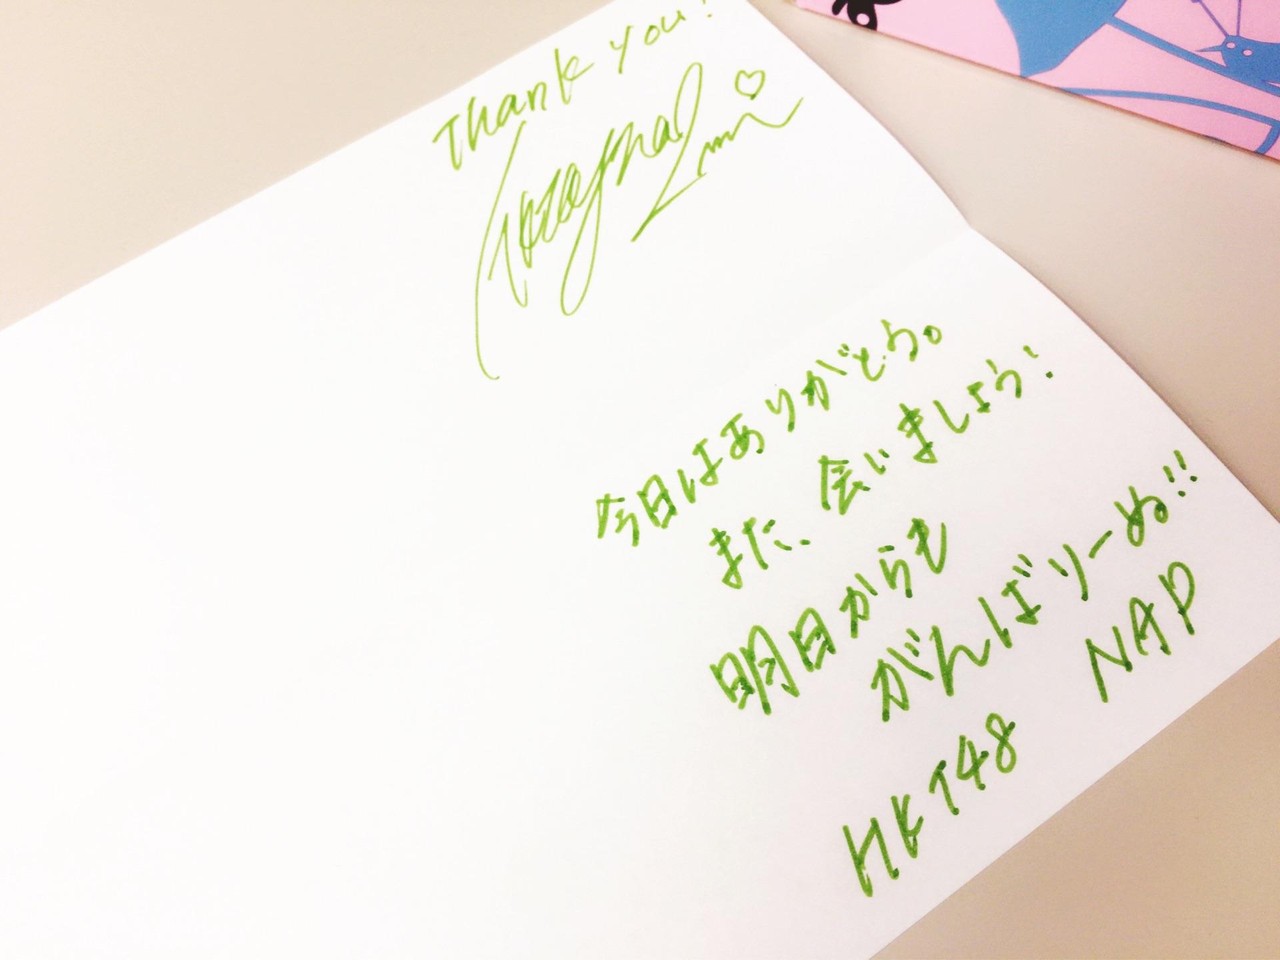 Thank you!
今日はありがとう。
また、会いましょう!
明日からも
がんばりーぬ!!
HKT48 NAP